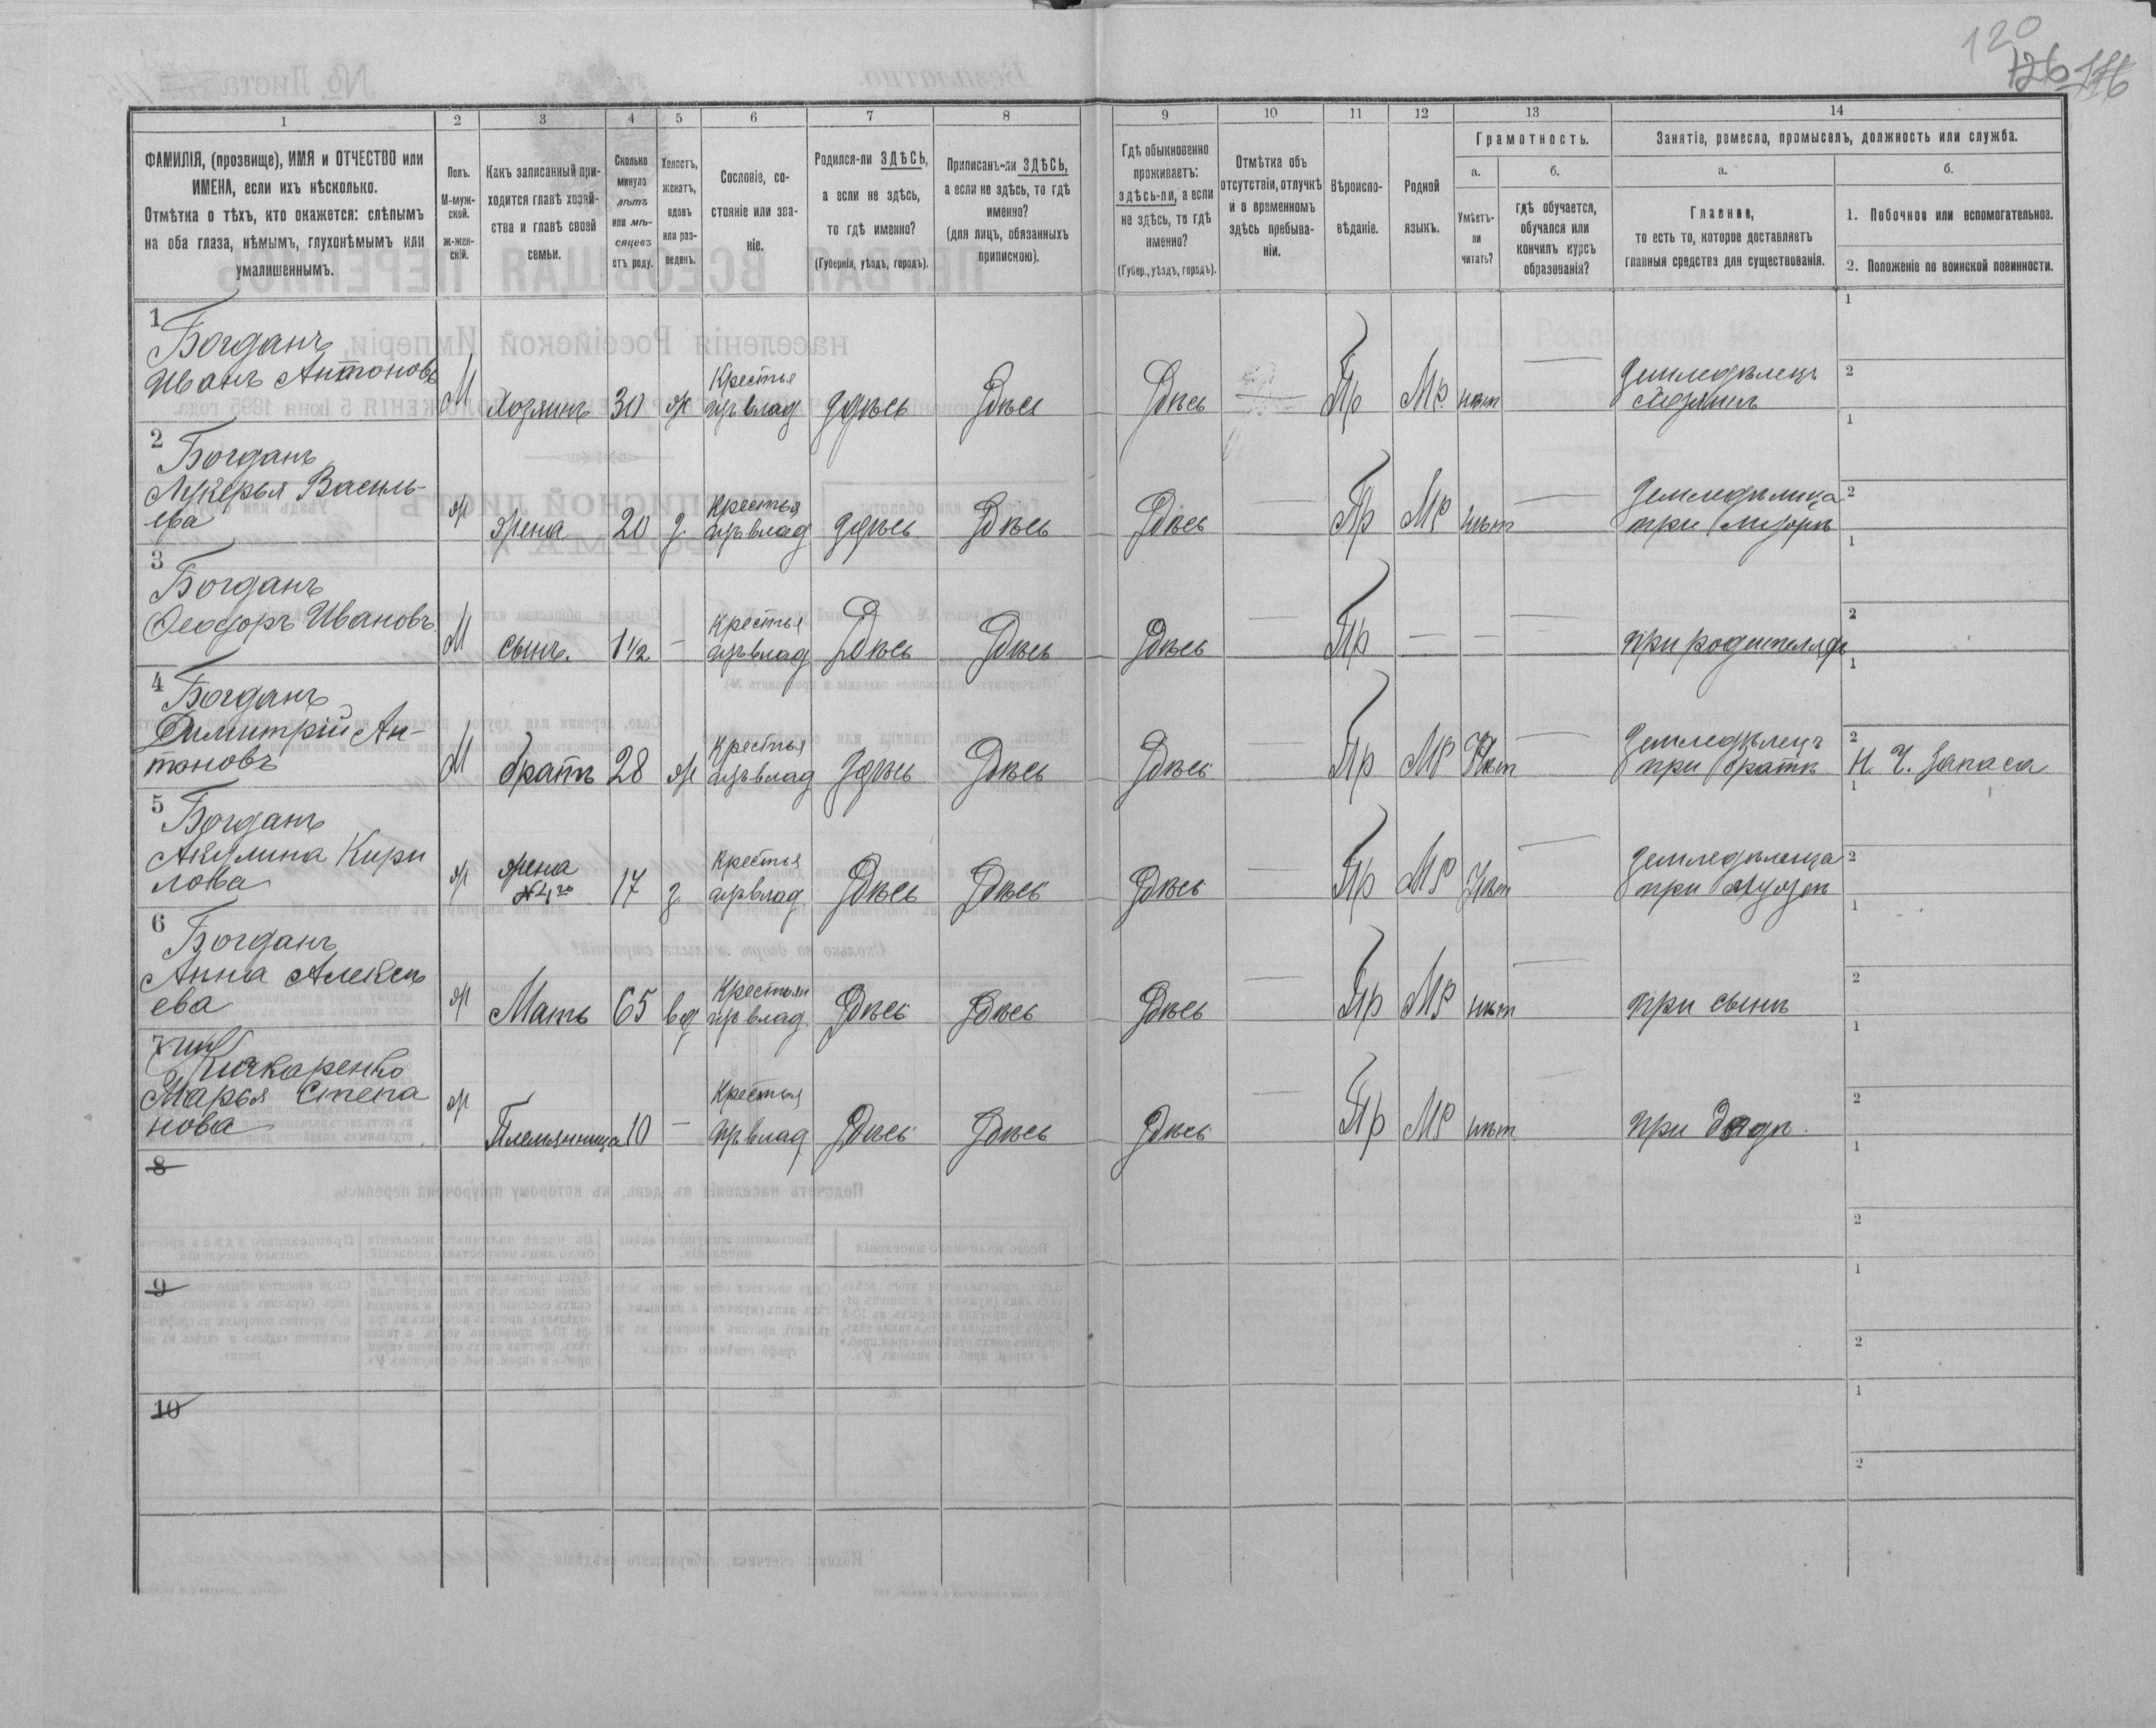 120
126 116
1 2 3 4 5 6 7 8 9 10 11 12 13 14
ФАМИЛІЯ, (прозвище), ИМЯ и ОТЧЕСТВО или
ИМЕНА, если ихъ нѣсколько.
Отмѣтка о тѣхъ, кто окажется: слѣпымъ
на оба глаза, нѣмымъ, глухонѣмымъ или
умалишеннымъ.
Полъ.
М-муж-
ской.
Ж-жен-
скій.
Какъ записанный при-
ходится главѣ хозяй-
ства и главѣ своей
семьи.
Сколько
минуло
лѣтъ
или мѣ-
сяцевъ
отъ роду.
Холостъ,
женатъ,
вдовъ
или раз-
веденъ.
Сословіе, со-
стояніе или зва-
ніе.
Родился-ли ЗДѢСЬ,
а если не здѣсь,
то гдѣ именно?
(Губернія, уѣздъ, городъ).
Приписанъ-ли ЗДѢСЬ,
а если не здѣсь, то гдѣ
именно?
(для лицъ, обязанныхъ
припискою).
Гдѣ обыкновенно
проживаетъ:
здѣсь-ли, а если
не здѣсь, то гдѣ
именно?
(Губер., уѣздъ, городъ).
Отмѣтка объ
отсутствіи, отлучкѣ
и о временномъ
здѣсь пребыва-
ніи.
Вѣроиспо-
вѣданіе.
Родной
языкъ.
Грамотность.
а.
Умѣетъ-
ли
читать?
б.
гдѣ обучается,
обучался или
кончилъ курсъ
образованія?
Занятіе, ремесло, промыселъ, должность или служба.
а.
Главное,
то есть то, которое доставляетъ
главныя средства для существованія.
б.
1. Побочное или вспомогательное.
2. Положеніе по воинской повинности.
1
Богданъ
Иванъ Антоновъ
М Хозяинъ 30 ж Крестья
изъ влад здѣсь Здѣсь Здѣсь Пр Мр. нѣт — Земледѣлецъ
Хозяинъ
1
2
2
Богданъ
Лукерья Василь-
ева
ж жена 20 з. Крестья
изъ влад здѣсь Здѣсь Здѣсь — Пр Мр нѣт — Земледѣлица
при мужѣ
1
2
3
Богданъ
Ѳеодоръ Ивановъ
М сынъ. 1 1/2 — Крестья
изъ влад Здѣсь Здѣсь Здѣсь — Пр — — — при родителях
1
2
4
Богданъ
Димитрій Ан-
тоновъ
М братъ 28 ж Крестья
изъ влад здѣсь Здѣсь Здѣсь — Пр Мр Нѣт — Земледѣлецъ
при братѣ
1
2
Н. Ч. Запаса
5
Богданъ
Акулина Кири
лова
ж жена
№ 4го 17 з Крестья
изъ влад Здѣсь Здѣсь Здѣсь — Пр Мр Нѣт — Земледѣлица
при мужѣ
1
2
6
Богданъ
Анна Алексѣ
ева
ж Мать 65 вд Крестьян
изъ влад. Здѣсь Здѣсь Здѣсь — Пр Мр нѣт — при сынѣ
1
2
7
Марья Степа
нова
ж Племянница 10 — Крестья
изъ влад Здѣсь Здѣсь Здѣсь — Пр Мр нѣт — при дядѣ.
1
2
8
1
2
9
1
2
10
1
2